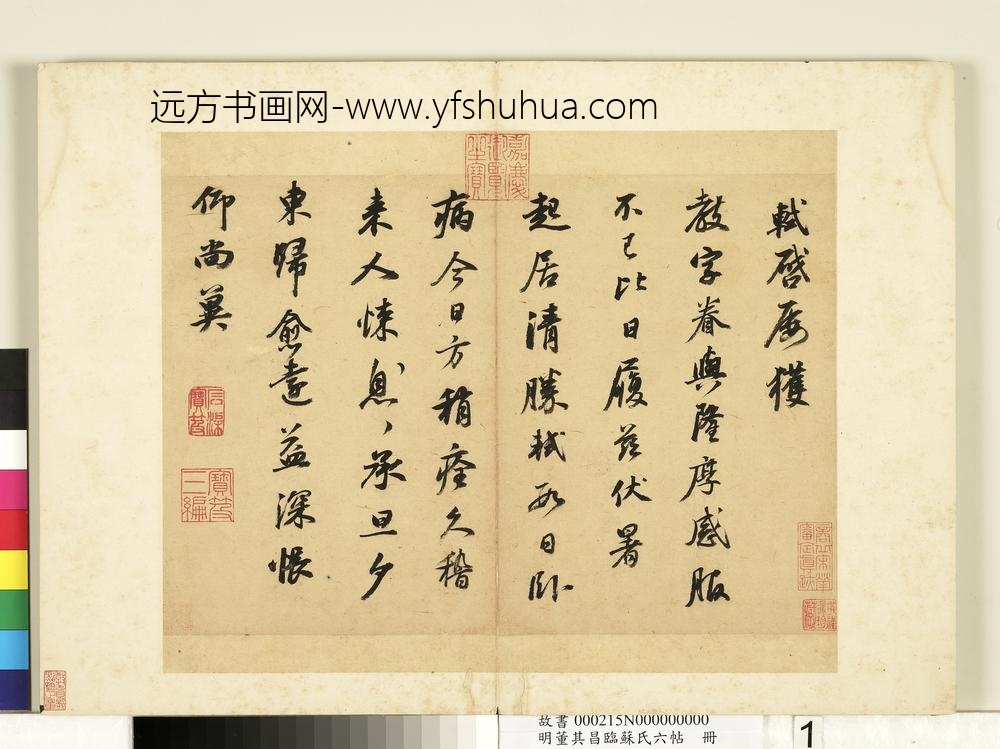 远方书画网-www.yfshuhua.com
軾啓屢獲
教字眷與隆厚感服
不已比日履茲伏暑
起居清勝軾數日臥
病今日方稍痊久稽
来人悚息〻承旦夕
東歸愈遠益深悵
仰尚冀
嘉慶御覽之寶
石渠寶笈
寶笈三編
故書 000215N000000000
明董其昌臨蘇氏六帖 冊
1